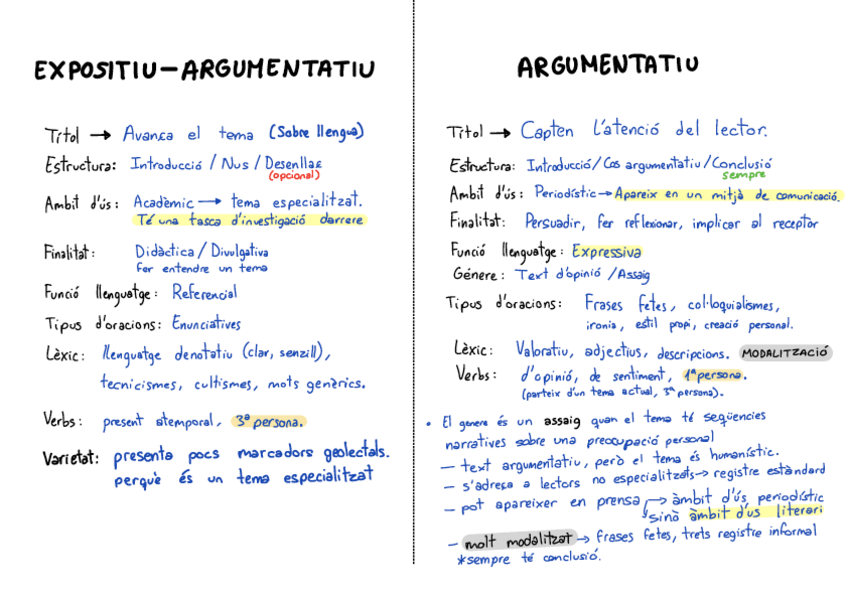 EXPOSITIU-ARGUMENTATIU
Títol → Avança el tema (Sobre llengua)
Estructura: Introducció / Nus / Desenllaç
(opcional)
Àmbit d'ús: Acadèmic → tema especialitzat.
Té una tasca d'investigació darrere
Finalitat: Didàctica / Divulgativa
Fer entendre un tema
Funció llenguatge: Referencial
Tipus d'oracions: Enunciatives
Lèxic: llenguatge denotatiu (clar, senzill),
tecnicismes, cultismes, mots genèrics.
Verbs: present atemporal, 3ª persona.
Varietat: presenta pocs marcadors geolectals.
perquè és un tema especialitzat
ARGUMENTATIU
Títol → Capten l'atenció del lector.
Estructura: Introducció/Cos argumentatiu/Conclusió
sempre
Àmbit d'ús: Periodístic → Apareix en un mitjà de comunicació.
Finalitat: Persuadir, fer reflexionar, implicar al receptor
Funció llenguatge: Expressiva
Génere: Text d'opinió /Assaig
Tipus d'oracions: Frases fetes, col·loquialismes,
ironia, estil propi, creació personal.
Lèxic: Valoratiu, adjectius, descripcions. MODALITZACIÓ
Verbs: d'opinió, de sentiment, 1ª persona.
(parteix d'un tema actual, 3ª persona).
• El genere és un assaig quan el tema té seqüències
narratives sobre una preocupació personal
— text argumentatiu, però el tema és humanístic.
— s'adreça a lectors no especialitzats → registre estàndard
— pot apareixer en prensa → àmbit d'ús periodístic
sinó àmbit d'us literari
— molt modalitzat → frases fetes, trets registre informal
*sempre té conclusió.